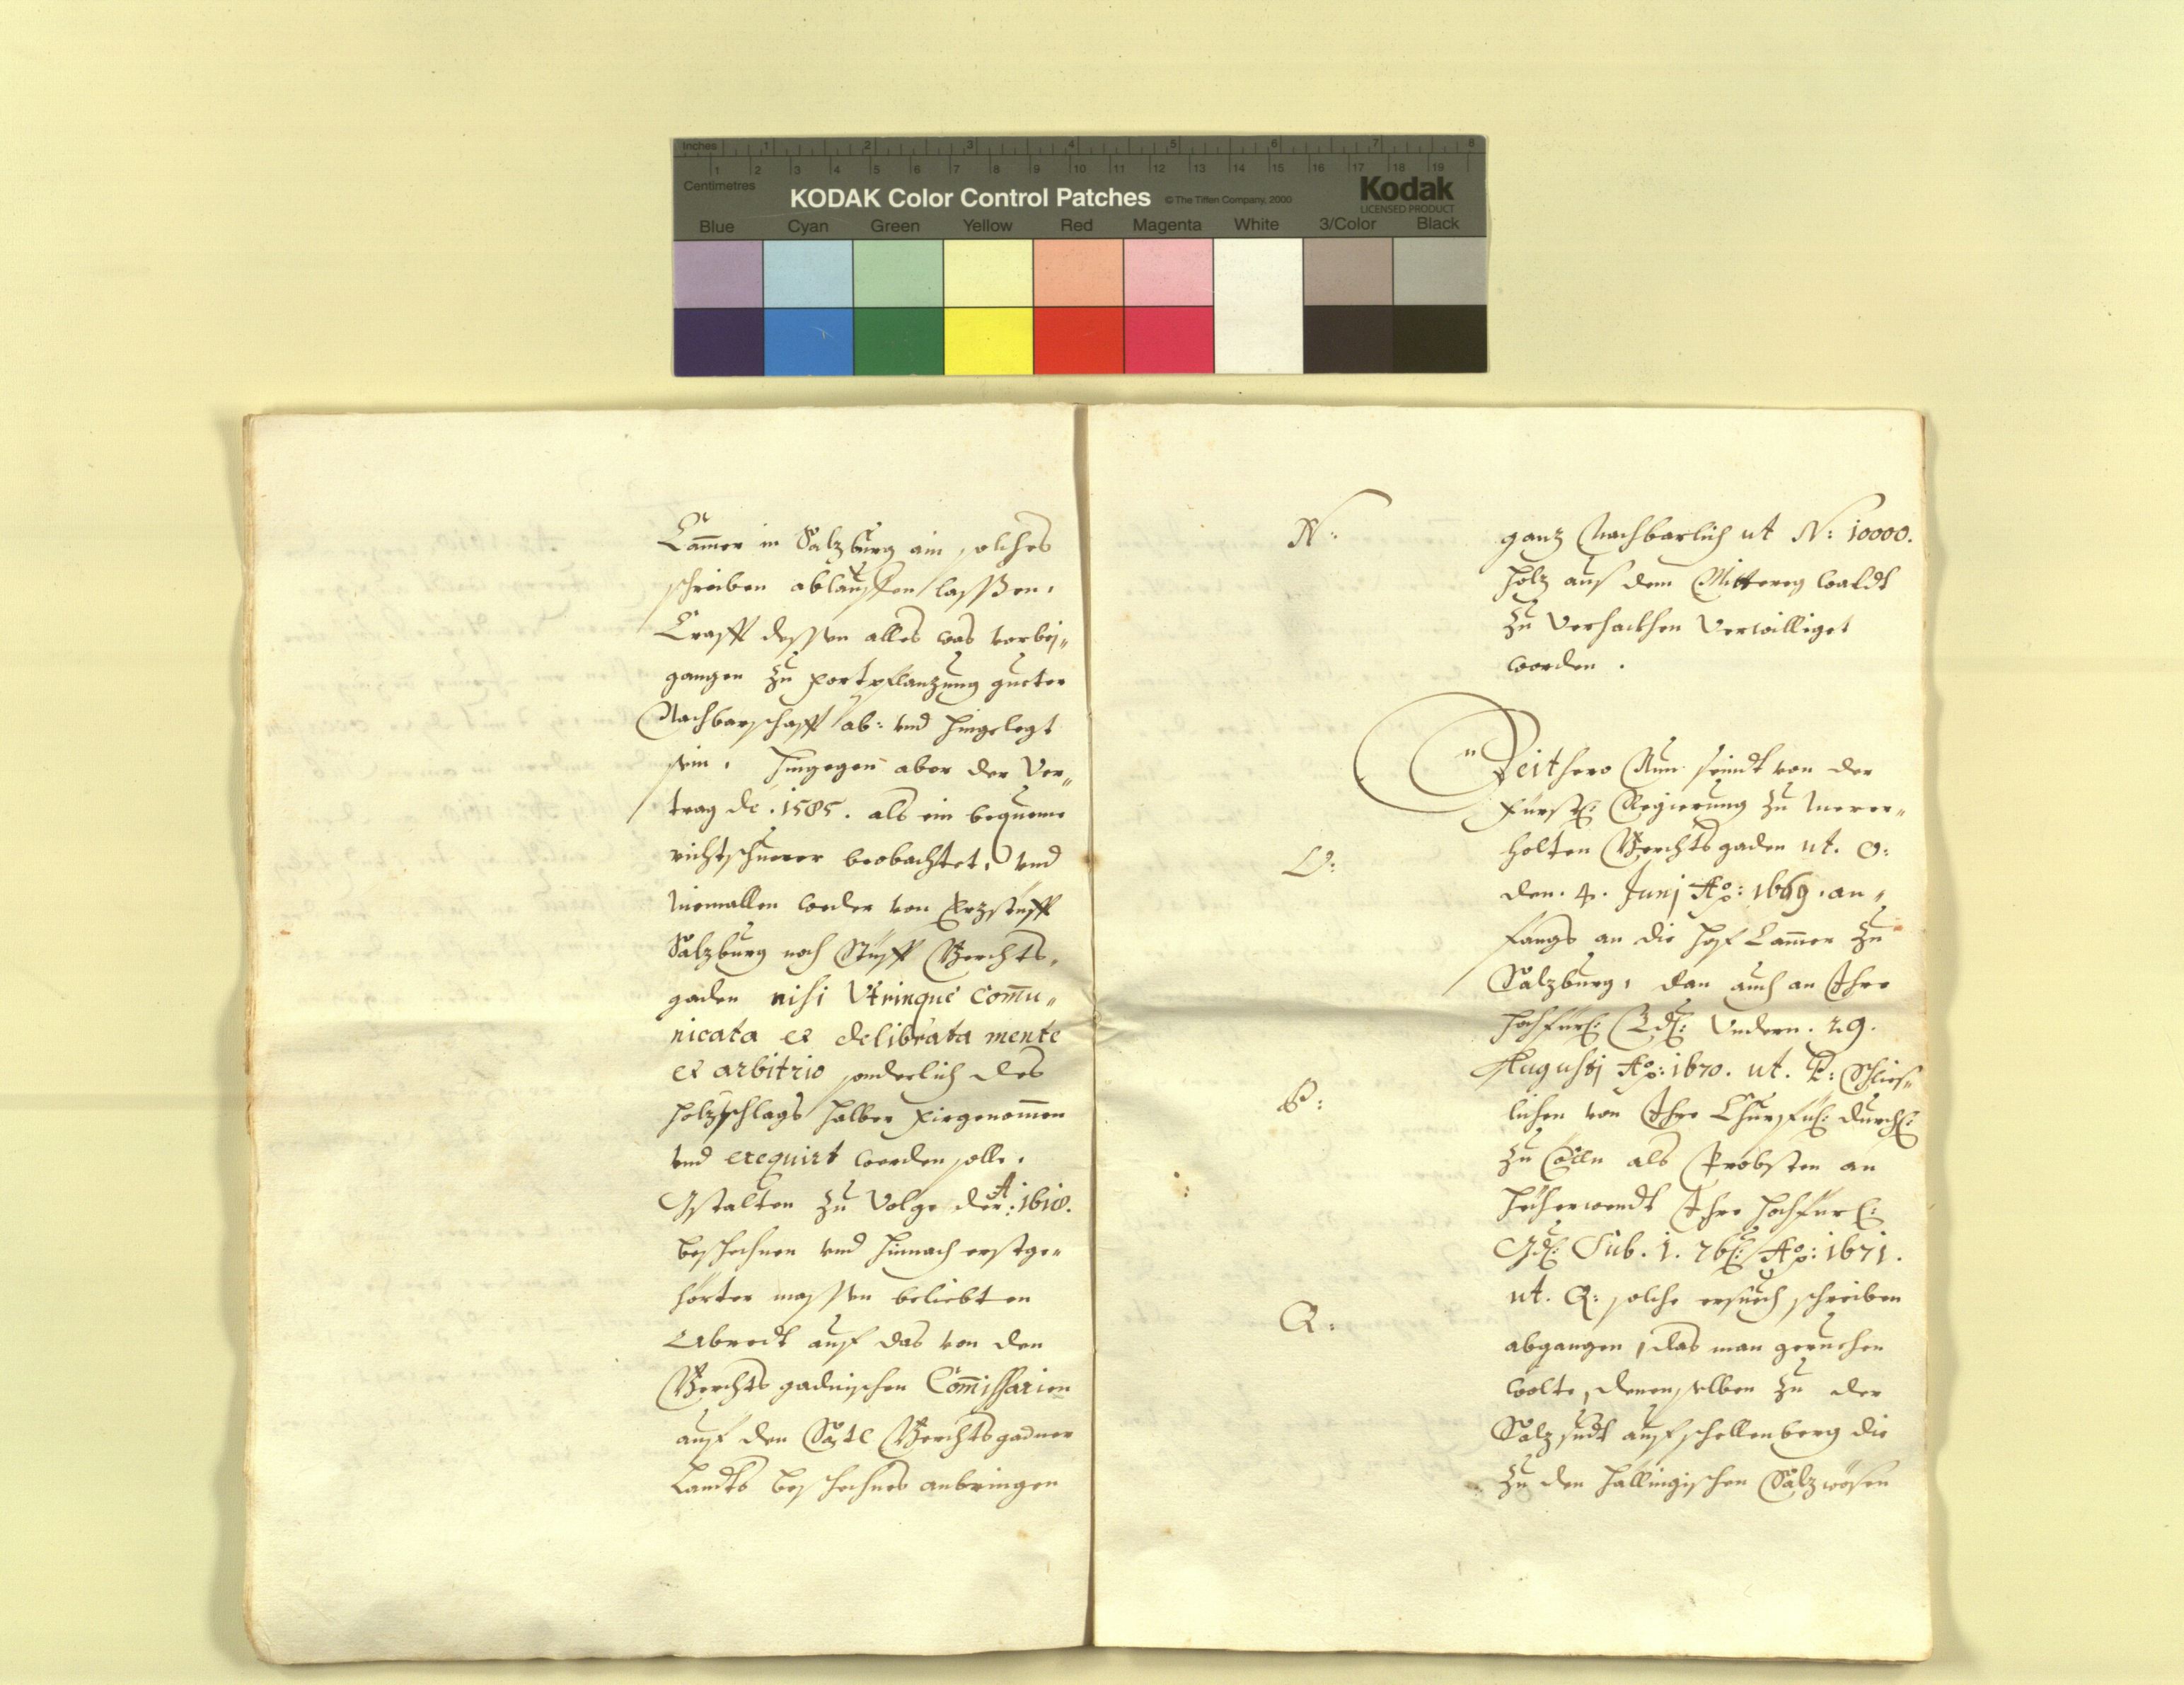 Inches 1 2 3 4 5 6 7 8
1 2 3 4 5 6 7 8 9 10 11 12 13 14 15 16 17 18 19
Centimetres
KODAK Color Control Patches © The Tiffen Company, 2000 Kodak
LICENSED PRODUCT
Blue Cyan Green Yellow Red Magenta White 3/Color Black
Cam̄er in Salzburg ain solches
schreiben ablauffen lasßen,
Crafft dessen alles was vorbej„
gangen zu fortpflanzung gueter
Nachbarschafft ab: vnd hingelegt
sein, hingegen aber der Ver„
trag de .1585. als ein bequeme
richtschnuer beobachtet, vnd
niemallen weder von Erzstüfft
Salzburg noch Stüfft Berchts„
gaden nisi Vtrinque Com̄u„
nicata et deliberata mente
et arbitrio sonderlich des
holzschlags halber firgenom̄en
vnd exequirt werden solle,
Gstalten zu Volge der A: 1618.
beschechnen vnd hinnach erstge„
hörter massen beliebten
Abredt auf das von den
Berchtsgadnischen Com̄issarien
auf den Berchtsgadner
Landts beschechnes anbringen
N:
ganz Nachbarlich ut N: 10000.
holz aus dem Mittereg Waldt
zu Verhackhen Verwilliget
worden.
Zeithero Nun seindt von der
fürstl: Regierung zu merer„
holten Berchtsgaden ut. O:
O:
den. 4. Junj Ao: 1669. an„
fangs an die hof Cam̄er zu
Salzburg, dan auch an Ihre
hochfürl: Gdl: Vndern. 29.
Augustj Ao: 1670. ut. P: Schlies„
P:
lichen von Ihre Churfürl: Durchl:
zu Cölln als Probsten an
höcherwendt Ihre hochfürl:
Gdl: Sub. 1. 7bl: Ao: 1671.
ut. Q: solche ersuech schreiben
Q:
abgangen, das man geruehen
wolte, denenselben zu der
Salzsudt auf schellenberg die
zu den hallingischen Salzwösen